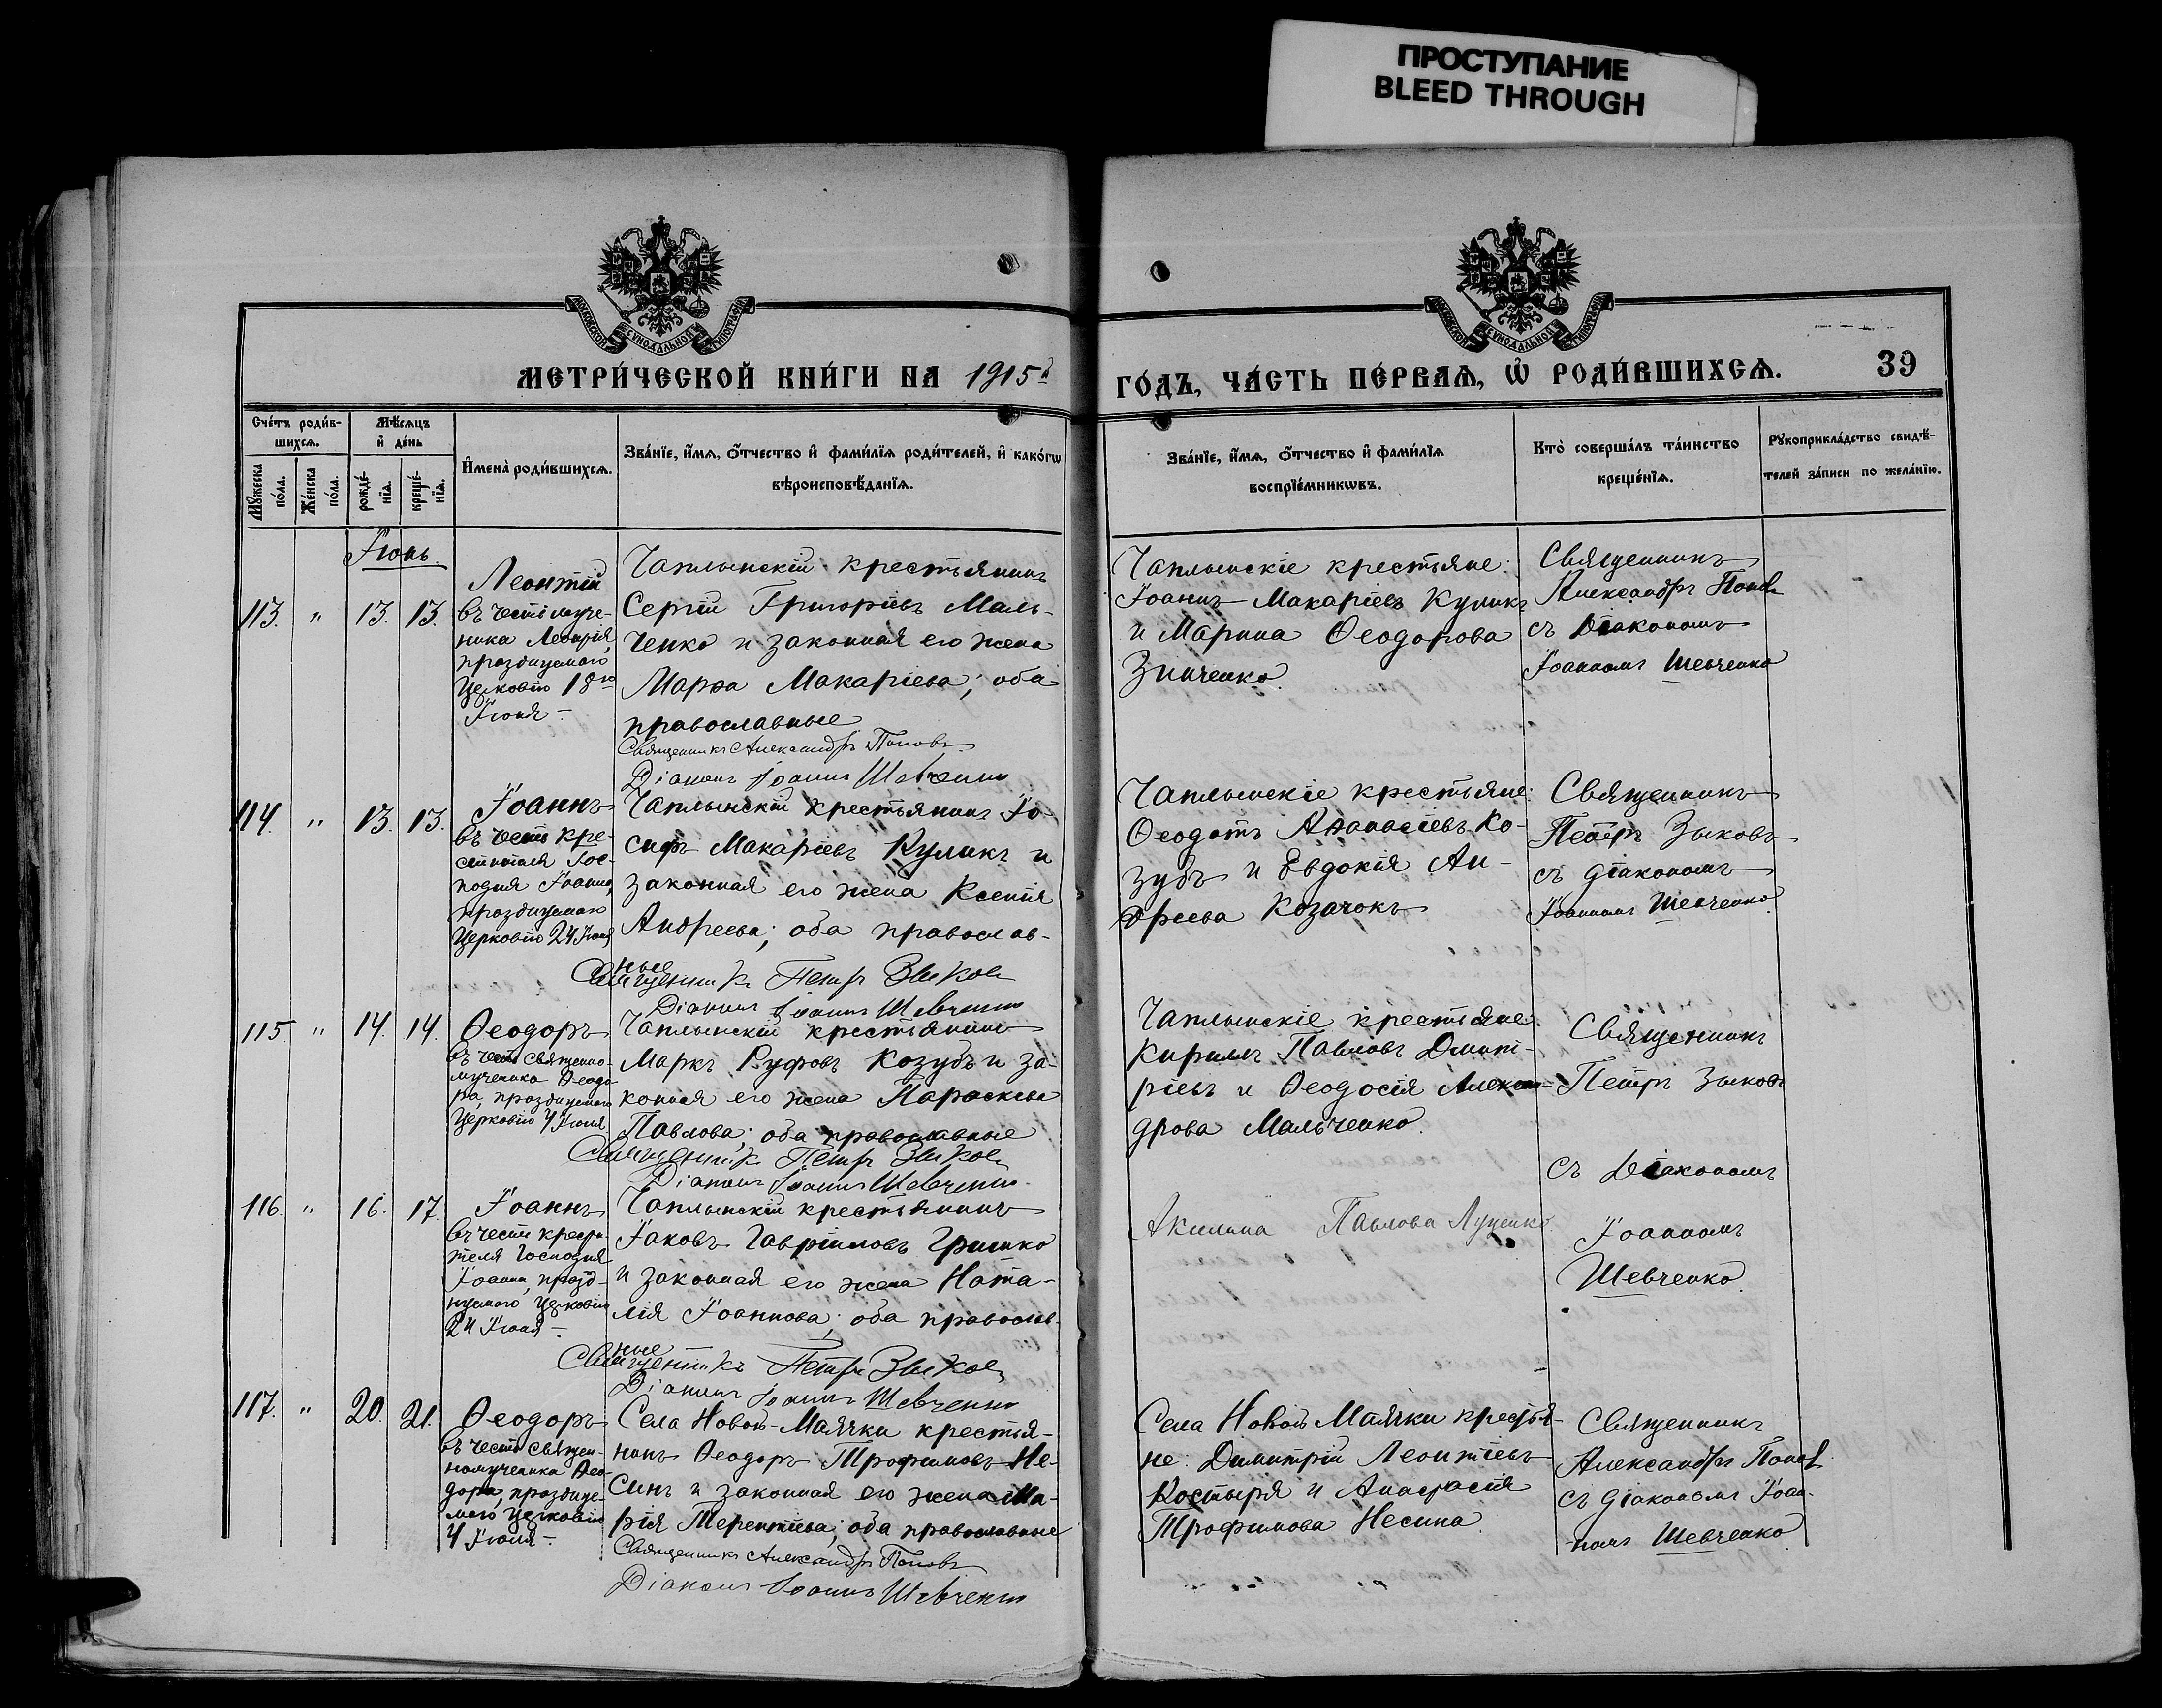 ПРОСТУПАНИЕ
BLEED THROUGH
МОСКОВСКОЙ СѴНОДАЛЬНОЙ ТИПОГРАФІИ
МОСКОВСКОЙ СѴНОДАЛЬНОЙ ТИПОГРАФІИ
МЕТРИ́ЧЕСКОЙ КНИ́ГИ НА 1915й
ГО́ДЪ, ЧА́СТЬ ПЕ́РВАѦ, Ѡ҆ РОДИ́ВШИХСѦ.
39
Сче́тъ роди́в-
шихсѧ.
Мѣ́сѧцъ
и҆ де́нь
Мꙋ́жеска
по́ла.
Же́нска
по́ла.
рожде́-
нїѧ.
креще́-
нїѧ.
И҆мена̀ роди́вшихсѧ.
Зва́нїе, и҆́мѧ, ѻ҆́тчество и҆ фами́лїѧ роди́телей, и҆ како́гѡ
вѣроисповѣ́данїѧ.
Зва́нїе, и҆́мѧ, ѻ҆́тчество и҆ фами́лїѧ
воспрїе́мникѡвъ.
Кто̀ соверша́лъ та́инство
креще́нїѧ.
Рꙋкоприкла́дство свидѣ́-
телей за́писи по жела́нїю.
Іюнь.
113. " 13. 13.
Леонтій
въ честь муче-
ника Леонтія,
празднуемаго
Церковію 18го
Іюня –
Чаплынскій крестьянинъ
Сергій Григоріевъ Маль-
ченко и законная его жена
Марѳа Макаріева; оба
православные
Священникъ Александръ Поповъ
Діаконъ Іоаннъ Шевченко
Чаплынскіе крестьяне:
Іоаннъ Макаріевъ Куликъ
и Марина Ѳеодорова
Зинченко.
Священникъ
Александръ Поповъ
съ Діакономъ
Іоанномъ Шевченко
114. " 13. 13.
Іоаннъ
въ честь Кре-
стителя Гос-
подня Іоанна,
празднуемаго
Церковію 24 Іюня
Чаплынскій крестьянинъ Іо-
сифъ Макаріевъ Куликъ и
законная его жена Ксенія
Андреева; оба православ-
ные
Священникъ Петръ Зыковъ
Діаконъ Іоаннъ Шевченко
Чаплынскіе крестьяне:
Ѳеодотъ Аѳанасіевъ Ко-
зубъ и Евдокія Ан-
дреева Козачокъ
Священникъ
Петръ Зыковъ
съ діакономъ
Іоанномъ Шевченко.
115. " 14. 14.
Ѳеодоръ
въ честь священно-
мученика Ѳеодо-
ра, празднуемаго
Церковію 4 Іюня
Чаплынскій крестьянинъ
Маркъ Руфовъ Козубъ и за-
конная его жена Параскева
Павлова; оба православные
Священникъ Петръ Зыковъ
Діаконъ Іоаннъ Шевченко.
Чаплынскіе крестьяне:
Кириллъ Павловъ Дмит-
ріевъ и Ѳеодосія Алексан-
дрова Мальченко.
Священникъ
Петръ Зыковъ
съ Діакономъ
Іоанномъ
Шевченко.
116. " 16. 17.
Іоаннъ
въ честь Крести-
теля Господня
Іоанна, празд-
нуемаго Церковію
24 Іюня –
Чаплынскій крестьянинъ
Іаковъ Гавріиловъ Гришко
и законная его жена Ната-
лія Іоаннова; оба православ-
ные
Священникъ Петръ Зыковъ
Діаконъ Іоаннъ Шевченко
Акилина Павлова Луценко
117. " 20. 21.
Ѳеодоръ
въ честь священ-
номученика Ѳео-
дора, празднуе-
маго Церковію
4 Іюня –
Села Новой-Маячки крестья-
нинъ Ѳеодоръ Трофимовъ Не-
синъ и законная его жена Ма-
рія Терентіева; оба православные
Священникъ Александръ Поповъ
Діаконъ Іоаннъ Шевченко
Села Новой Маячки крестья-
не: Димитрій Леонтіевъ
Костыря и Анастасія
Трофимова Несина
Священникъ
Александръ Поповъ
съ діакономъ Іоан-
номъ Шевченко.